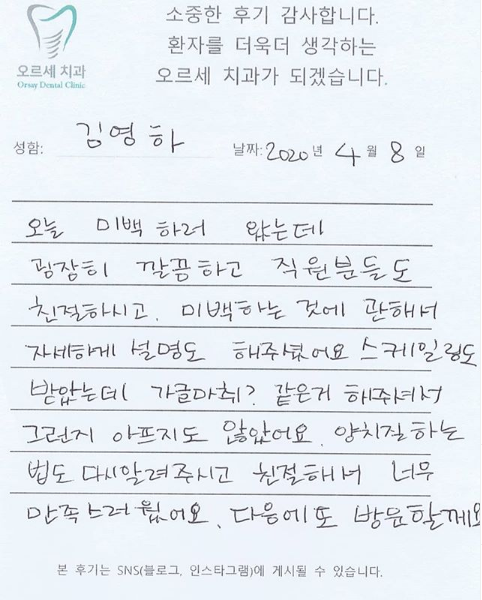 소중한 후기 감사합니다.
환자를 더욱더 생각하는
오르세 치과가 되겠습니다.
오르세 치과
Orsay Dental Clinic
성함: 김영하 날짜: 2020 년 4 월 8 일
오늘 미백 하러 왔는데
굉장히 깔끔하고 직원분들도
친절하시고. 미백하는 것에 관해서
자세하게 설명도 해주셨어요 스케일링도
받았는데 가글마취? 같은거 해주셔서
그런지 아프지도 않았어요. 양치질하는
법도 다시알려주시고 친절해서 너무
만족스러웠어요. 다음에도 방문할께요
본 후기는 SNS(블로그, 인스타그램)에 게시될 수 있습니다.